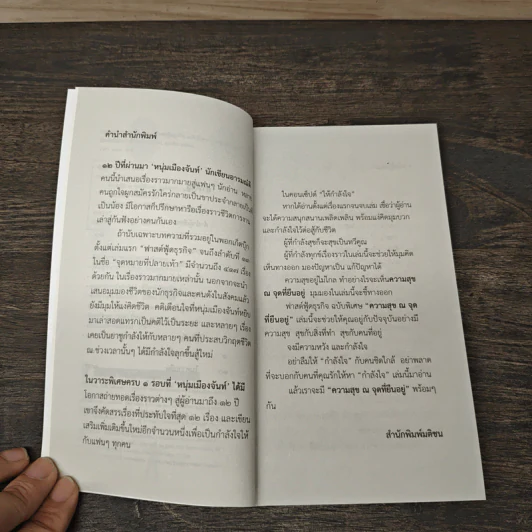 คำนำสำนักพิมพ์
๑๒ ปีที่ผ่านมา 'หนุ่มเมืองจันท์' นักเขียนอารมณ์ดี
คนนี้นำเสนอเรื่องราวมากมายสู่แฟนๆ นักอ่าน
คนถูกใจผูกสมัครรักใคร่กลายเป็นขาประจำกลายเป็น
เป็นน้อง มีโอกาสก็ปรึกษาหารือเรื่องราวชีวิตการงาน
เล่าสู่กันฟังอย่างคนกันเอง
ถ้านับเฉพาะบทความที่รวมอยู่ในพอกเก็ตบุ๊ก
ตั้งแต่เล่มแรก "ฟาสต์ฟู้ดธุรกิจ" จนถึงลำดับที่
ในชื่อ "จุดหมายที่ปลายเท้า" มีจำนวนถึง เรื่อง
ด้วยกัน ในเรื่องราวมากมายเหล่านั้น นอกจากจะนำ
เสนอมุมมองชีวิตของนักธุรกิจและคนดังในสังคมแล้ว
ยังมีมุมให้แง่คิดชีวิต คติเตือนใจที่หนุ่มเมืองจันท์หยิบ
มาเล่าสอดแทรกเป็นคติไว้เป็นระยะ และหลายๆ เรื่อง
เคยเป็นยาชูกำลังให้กับหลายๆ คนที่ประสบวิกฤตชีวิต
ณ ช่วงเวลานั้นๆ ได้มีกำลังใจลุกขึ้นสู้ใหม่
ในวาระพิเศษครบ ๑ รอบที่ 'หนุ่มเมืองจันท์' ได้มี
โอกาสถ่ายทอดเรื่องราวต่างๆ สู่ผู้อ่านมาถึง ๑๒ ปี
เขาจึงคัดสรรเรื่องที่ประทับใจที่สุด ๑๒ เรื่อง และเขียน
เสริมเพิ่มเติมขึ้นใหม่อีกจำนวนหนึ่งเพื่อเป็นกำลังใจให้
กับแฟนๆ ทุกคน
ในคอนเซ็ปต์ "ให้กำลังใจ"
หากได้อ่านตั้งแต่เรื่องแรกจนจบเล่ม เชื่อว่าผู้อ่าน
จะได้ความสนุกสนานเพลิดเพลิน พร้อมแง่คิดมุมบวก
และกำลังใจไว้ต่อสู้กับชีวิต
ผู้ที่กำลังสุขก็จะสุขเป็นทวีคูณ
ผู้ที่กำลังทุกข์เรื่องราวในเล่มนี้จะช่วยให้มุมคิด
เห็นทางออก มองปัญหาเป็น แก้ปัญหาได้
ความสุขอยู่ไม่ไกล ทำอย่างไรจะเห็นความสุข
ณ จุดที่ยืนอยู่ มุมมองในเล่มนี้จะชี้ทางออก
ฟาสต์ฟู้ดธุรกิจ ฉบับพิเศษ "ความสุข ณ จุด
ที่ยืนอยู่" เล่มนี้จะช่วยให้คุณอยู่กับปัจจุบันอย่างมี
ความสุข สุขกับสิ่งที่ทำ สุขกับคนที่อยู่
จงมีความหวัง และกำลังใจ
อย่าลืมให้ "กำลังใจ" กับคนชิดใกล้ อย่าพลาด
ที่จะบอกกับคนที่คุณรักให้หา "กำลังใจ" เล่มนี้มาอ่าน
แล้วเราจะมี "ความสุข ณ จุดที่ยืนอยู่" พร้อมๆ
กัน
สำนักพิมพ์มติชน